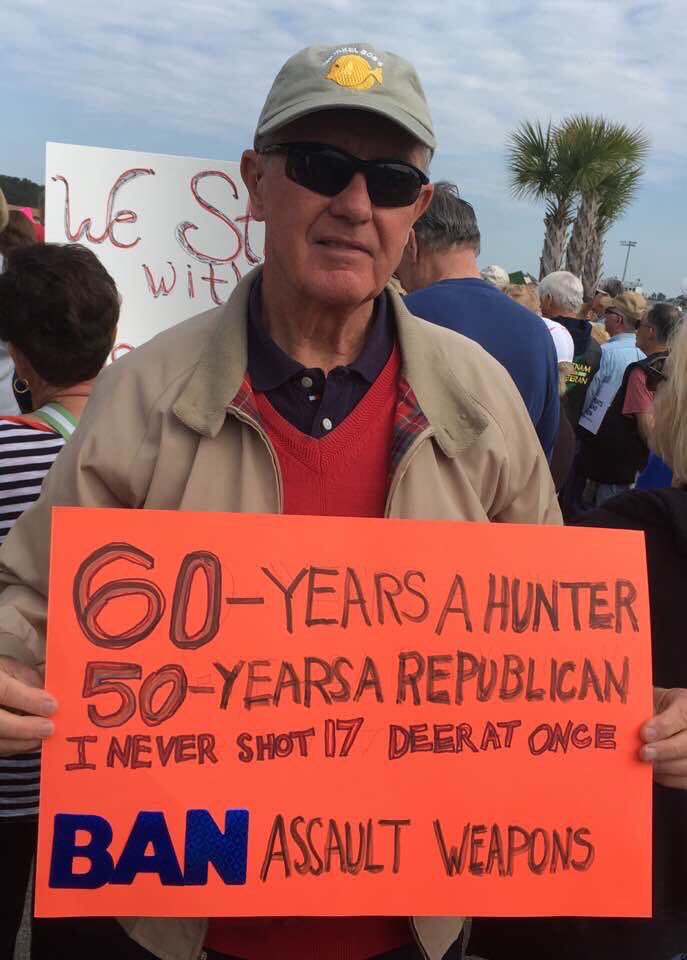 We
with
60-YEARS A HUNTER
50-YEARS A REPUBLICAN
I NEVER SHOT 17 DEER AT ONCE
BAN ASSAULT WEAPONS